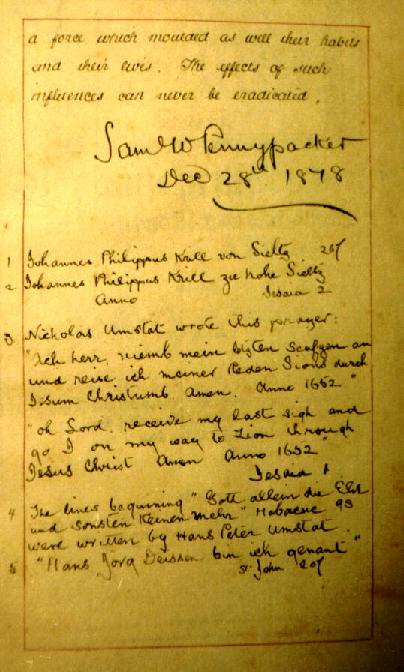 a force which moulded as well their habits
and their lives. The effects of such
influences can never be eradicated.
Saml W Pennypacker
Dec 28th 1878
1 Johannes Philippus Krill von Sieltz 207
2 Johannes Philippus Krill zu Hohe Sieltz
Anno Jesaia 2
3 Nicholas Umstat wrote this prayer:
"Ach herr, niemb mein lezten Seofzen an
und reise ich meiner Reden Sions durch
Jesum Christumb Amen. Anno 1652"
"oh Lord, receive my last sigh and
go I on my way to Zion through
Jesus Christ Amen Anno 1652"
Jesaia 1
4 The lines beginning "Gott allein die Ehr
und sonsten Keinen mehr" Habacuc 93
were written by Hans Peter Umstat.
5 "Hans Jorg Deissen bin ich genant"
St John 207